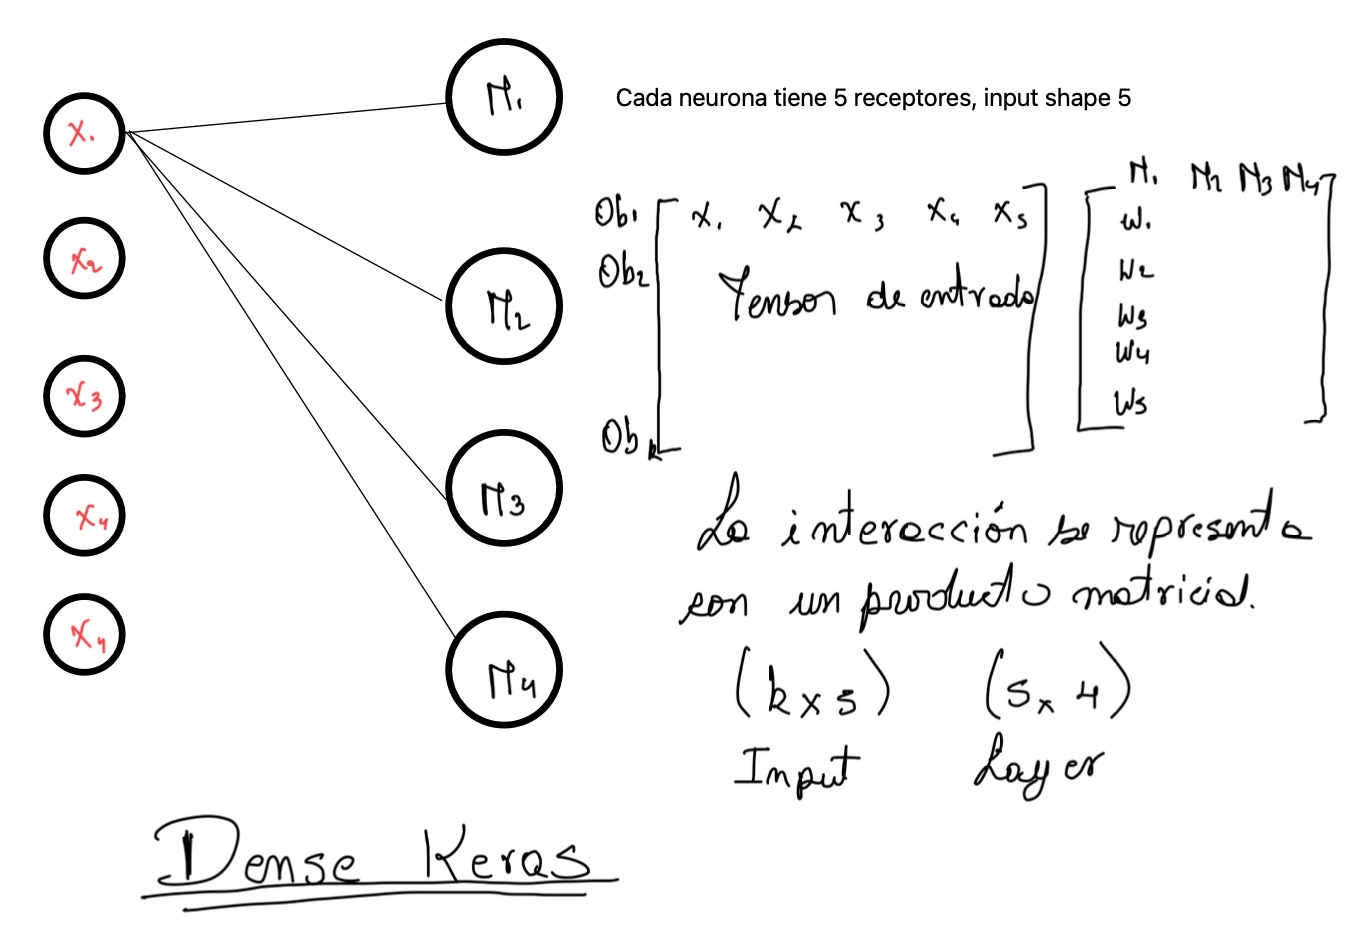 x1
x2
x3
x4
x4
N1
N2
N3
N4
Cada neurona tiene 5 receptores, input shape 5
N1 N2 N3 N4
Ob1 x1 x2 x3 x4 x5
Ob2 Tensor de entrada
Ob k
w1
w2
w3
w4
w5
La interacción se representa
con un producto matricial.
(k x 5) (5 x 4)
Input Layer
Dense Keras